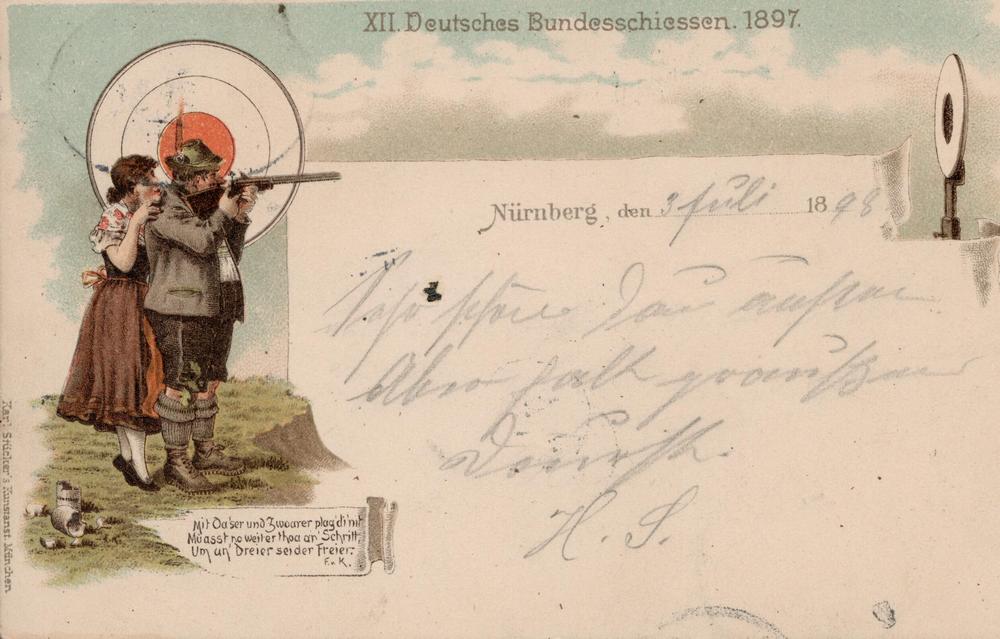 XII. Deutsches Bundesschiessen. 1897.
Nürnberg, den 3 Juli 1898
Aber halt
Durst.
H. S.
Mit Oa'ser und Zwoarer plag' di nit
Muasst no weiter thoa an' Schritt,
Um an' Dreier sei der Freier.
F. v. K.
Karl Stücker's Kunstanst. München.